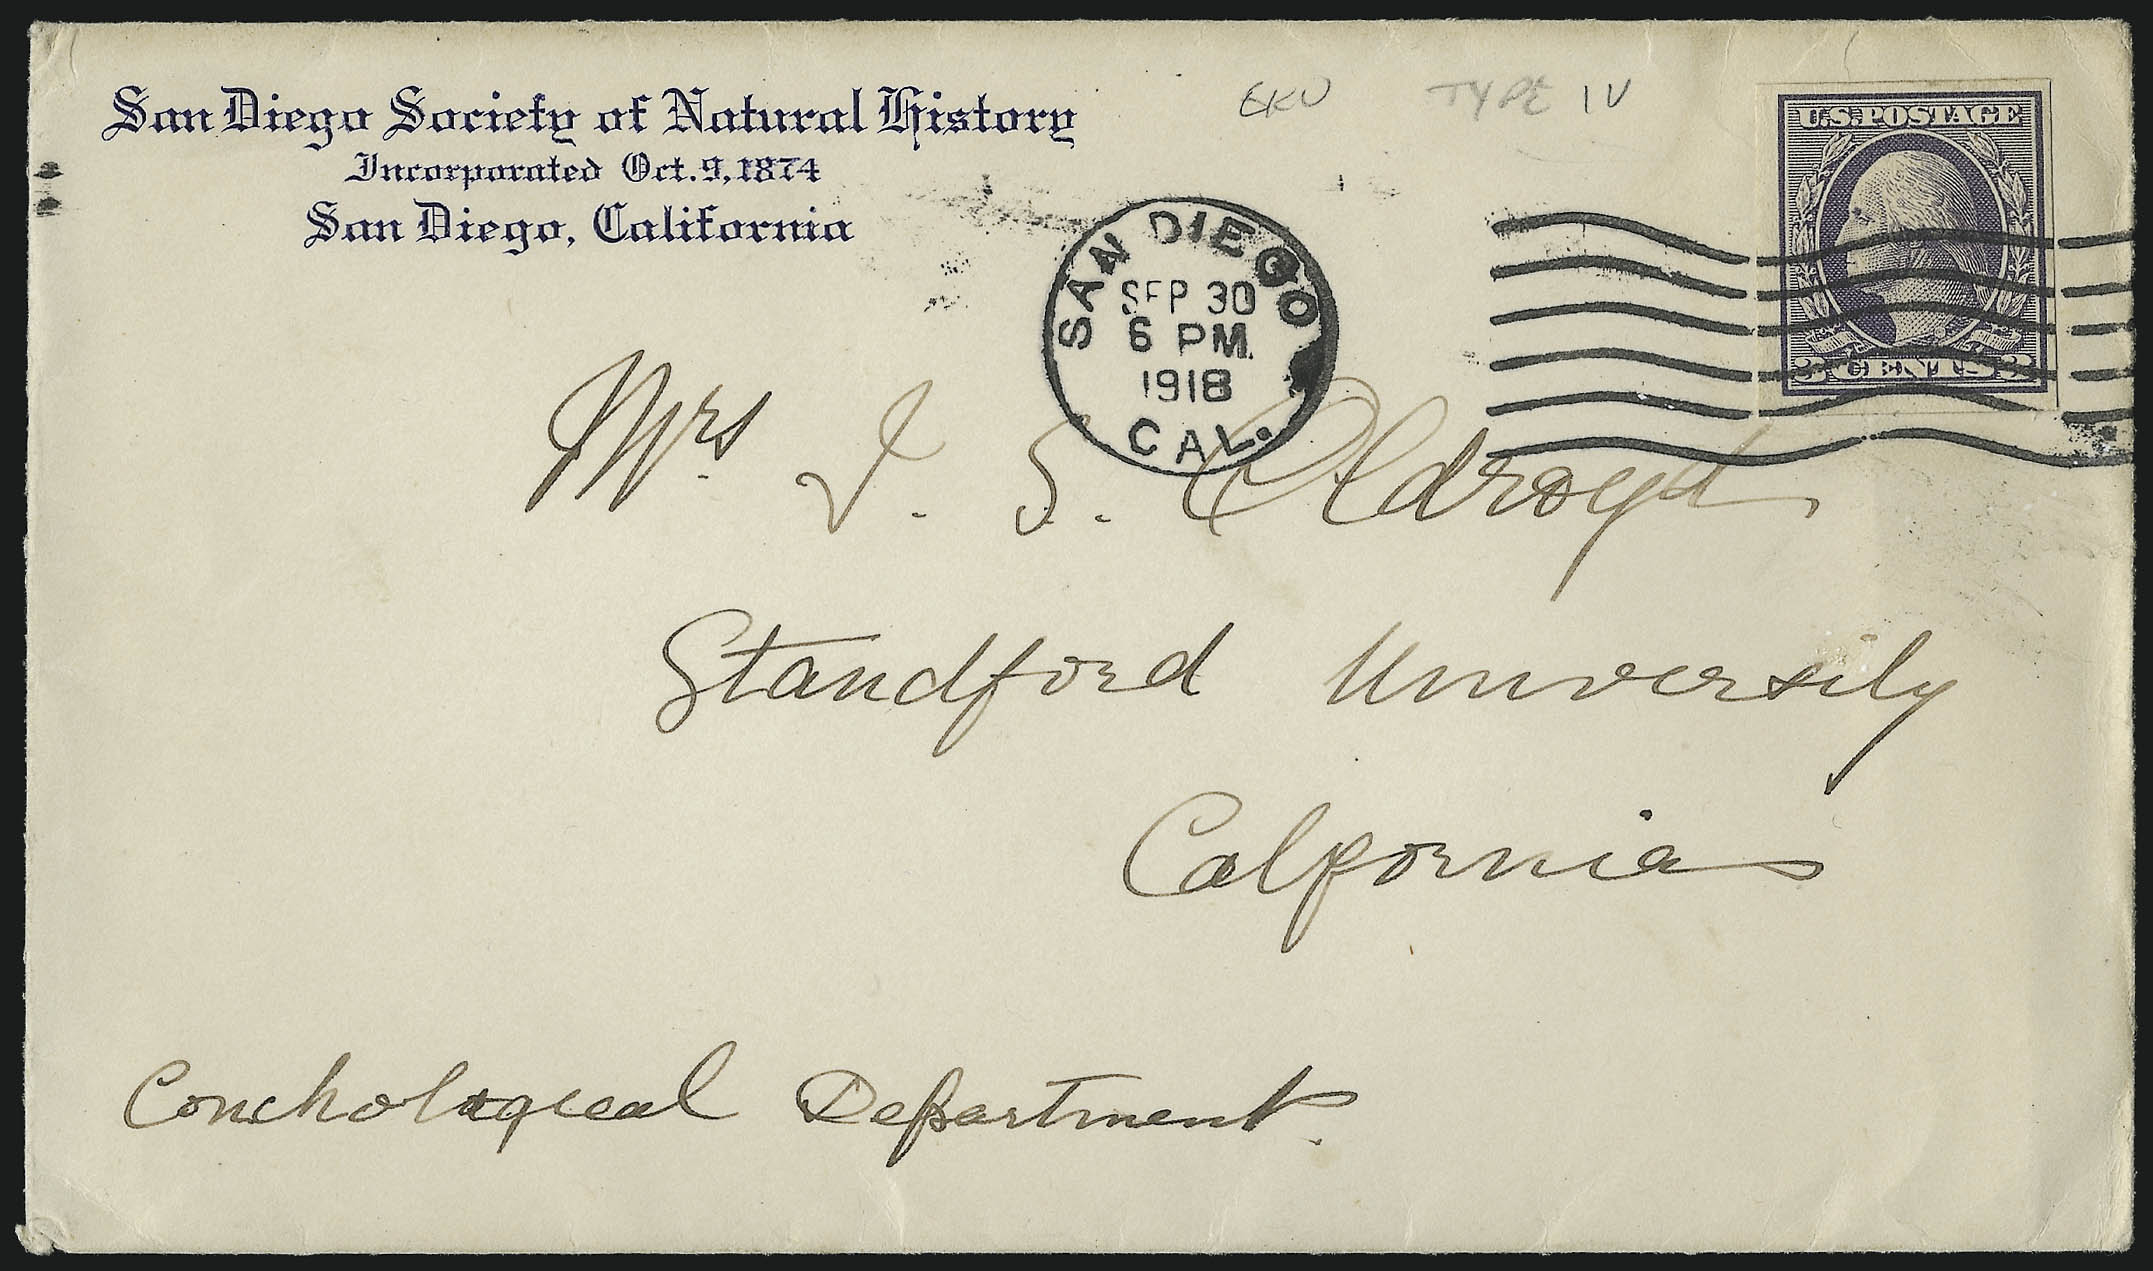 San Diego Society of Natural History
Incorporated Oct. 9, 1874
San Diego, California
EKU TYPE IV
U.S. POSTAGE
3 CENTS 3
SAN DIEGO
SEP 30
6 PM.
1918
CAL.
Mrs. I. S. Oldroyd
Standford University
Calfornia
Conchological Department.